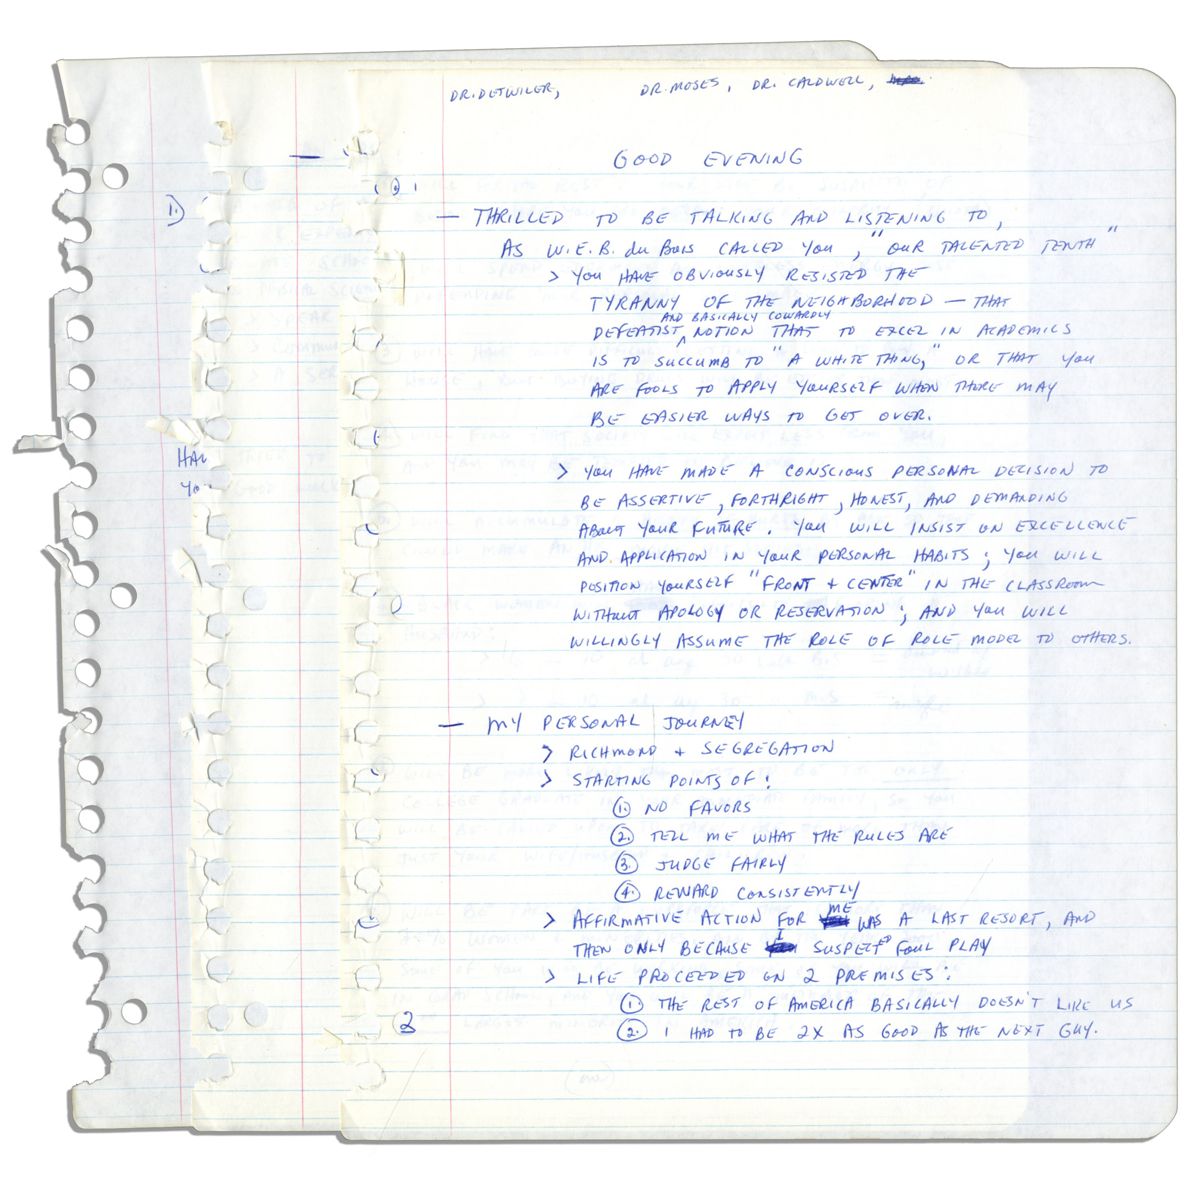 DR. DETWILER, DR. MOSES, DR. CALDWELL,
GOOD EVENING
1.
— THRILLED TO BE TALKING AND LISTENING TO,
AS W.E.B. du Bois CALLED YOU, "OUR TALENTED TENTH"
> YOU HAVE OBVIOUSLY RESISTED THE
TYRANNY OF THE NEIGHBORHOOD — THAT
AND BASICALLY COWARDLY
DEFEATIST ^ NOTION THAT TO EXCEL IN ACADEMICS
IS TO SUCCUMB TO "A WHITE THING," OR THAT YOU
ARE FOOLS TO APPLY YOURSELF WHEN THERE MAY
BE EASIER WAYS TO GET OVER.
HAV
YO
> YOU HAVE MADE A CONSCIOUS PERSONAL DECISION TO
BE ASSERTIVE, FORTHRIGHT, HONEST, AND DEMANDING
ABOUT YOUR FUTURE. YOU WILL INSIST ON EXCELLENCE
AND APPLICATION IN YOUR PERSONAL HABITS; YOU WILL
POSITION YOURSELF "FRONT + CENTER" IN THE CLASSROOM
WITHOUT APOLOGY OR RESERVATION; AND YOU WILL
WILLINGLY ASSUME THE ROLE OF ROLE MODEL TO OTHERS.
— MY PERSONAL JOURNEY
> RICHMOND + SEGREGATION
> STARTING POINTS OF:
1. NO FAVORS
2. TELL ME WHAT THE RULES ARE
3. JUDGE FAIRLY
4. REWARD CONSISTENTLY
> AFFIRMATIVE ACTION FOR ME WAS A LAST RESORT, AND
THEN ONLY BECAUSE I SUSPECTED FOUL PLAY
> LIFE PROCEEDED ON 2 PREMISES:
1. THE REST OF AMERICA BASICALLY DOESN'T LIKE US
2
2. I HAD TO BE 2X AS GOOD AS THE NEXT GUY.